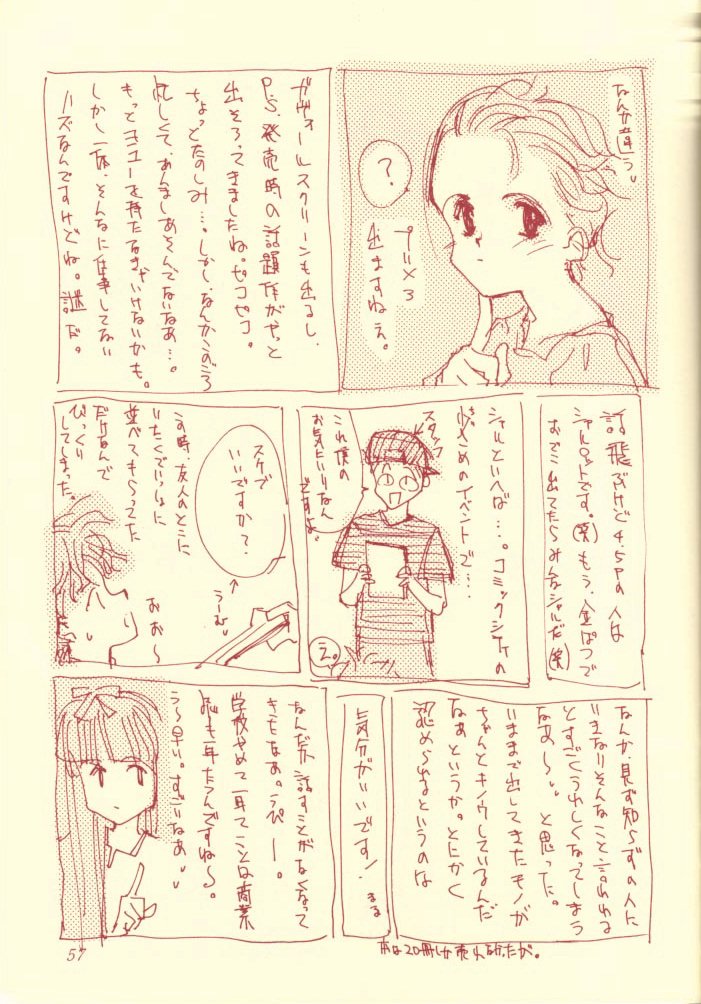 なんか違う
?
プリメ3
出ますねえ。
ガヴォールスクリーンも出るし、
P.S.発売時の話題作がやっと
出そろってきましたね。ピコピコ。
ちょっとたのしみ…。しかし、なんかこのごろ
忙しくて、あんましあそんでないなあ…。
もっとヨユーを持たなきゃいけないかも。
しかし一体、そんなに仕事してない
ハズなんですけどね。謎だ。
話飛ぶけど4.5Pの人は
シャルロットです。(笑)もう、金ぱつで
おでこ出てたらみんなシャルだ(笑)
シャルといえば…。コミックシティの
少なめのイベントで…
スタッフ
これ僕の
お気にいりなん
ですよ。
え。
スケブ
いいですか?
うーむ
その時、友人のとこに
いたくでいっしょに
並べてもらってた
だけなんで
びっくり
してしまった。
おお〜
なんか、見ず知らずの人に
いきなりそんなこと言われる
とすごくうれしくなってしまう
なあ〜 と思った。
いままで出してきたモノが
ちゃんとキノウしているんだ
なあというか。とにかく
認められるというのは
気分がいいです! まる
本は20冊しか売れなかったが。
なんだか話すことがなくなって
きたなあ。うぴー。
学校やめて一年てことは商業
誌も一年たつんですね〜。
う〜早い。すごいなあ
57